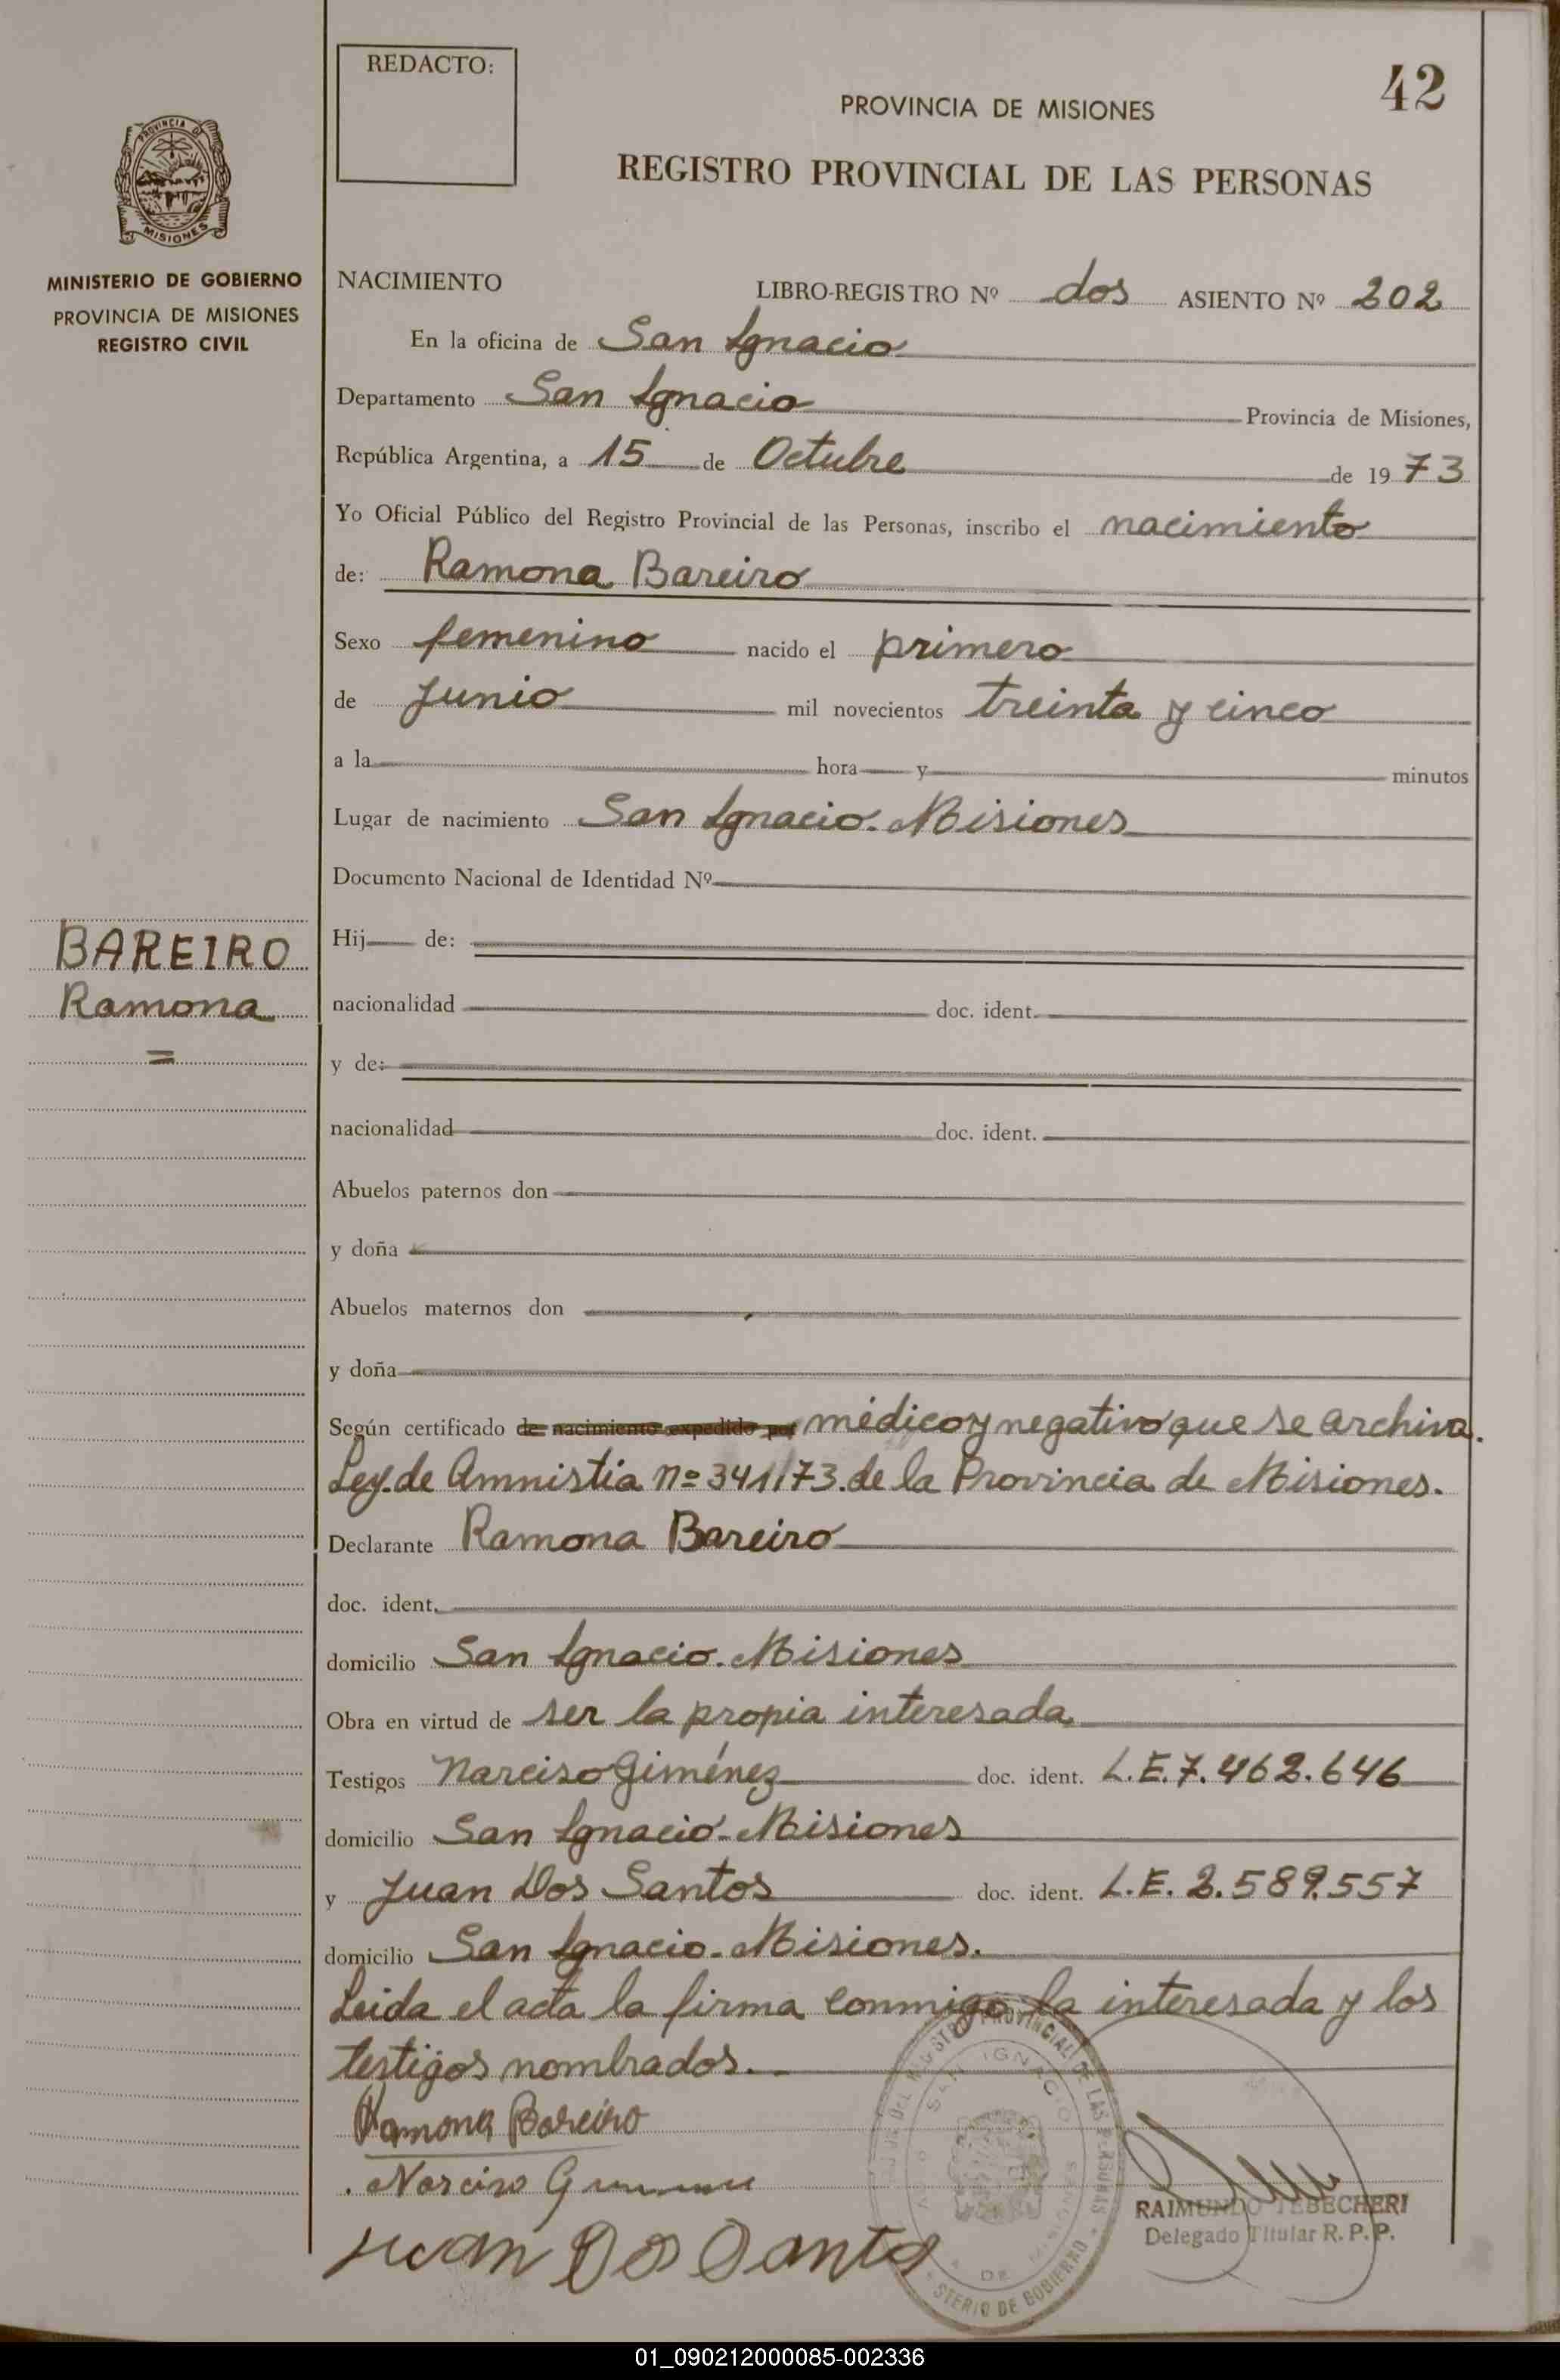 REDACTO:
42
PROVINCIA DE MISIONES
REGISTRO PROVINCIAL DE LAS PERSONAS
PROVINCIA DE
MISIONES
MINISTERIO DE GOBIERNO
PROVINCIA DE MISIONES
REGISTRO CIVIL
NACIMIENTO LIBRO-REGISTRO Nº dos ASIENTO Nº 202
En la oficina de San Ignacio
Departamento San Ignacio Provincia de Misiones,
República Argentina, a 15 de Octubre de 1973
Yo Oficial Público del Registro Provincial de las Personas, inscribo el nacimiento
de: Ramona Bareiro
Sexo femenino nacido el primero
de Junio mil novecientos treinta y cinco
a la hora y minutos
Lugar de nacimiento San Ignacio. Misiones
Documento Nacional de Identidad Nº
BAREIRO
Ramona
=
Hij de:
nacionalidad doc. ident.
y de:
nacionalidad doc. ident.
Abuelos paternos don
y doña
Abuelos maternos don
y doña
Según certificado de nacimiento expedido por médico y negativo que se archiva.
Ley de Amnistia nº 341/73. de la Provincia de Misiones.
Declarante Ramona Bareiro
doc. ident.
domicilio San Ignacio. Misiones
Obra en virtud de ser la propia interesada
Testigos Narciso Giménez doc. ident. L.E. 7.462.646
domicilio San Ignacio-Misiones
y Juan Dos Santos doc. ident. L.E. 2.589.557
domicilio San Ignacio-Misiones.
Leida el acta la firma conmigo la interesada y los
testigos nombrados.
Ramona Bareiro
Narciso
Juan Dos Santo
REGISTRO PROVINCIAL DE LAS PERSONAS
SAN IGNACIO
DE
DE GOBIERNO
RAIMUNDO TEBECHERI
Delegado Titular R. P. P.
01_090212000085-002336